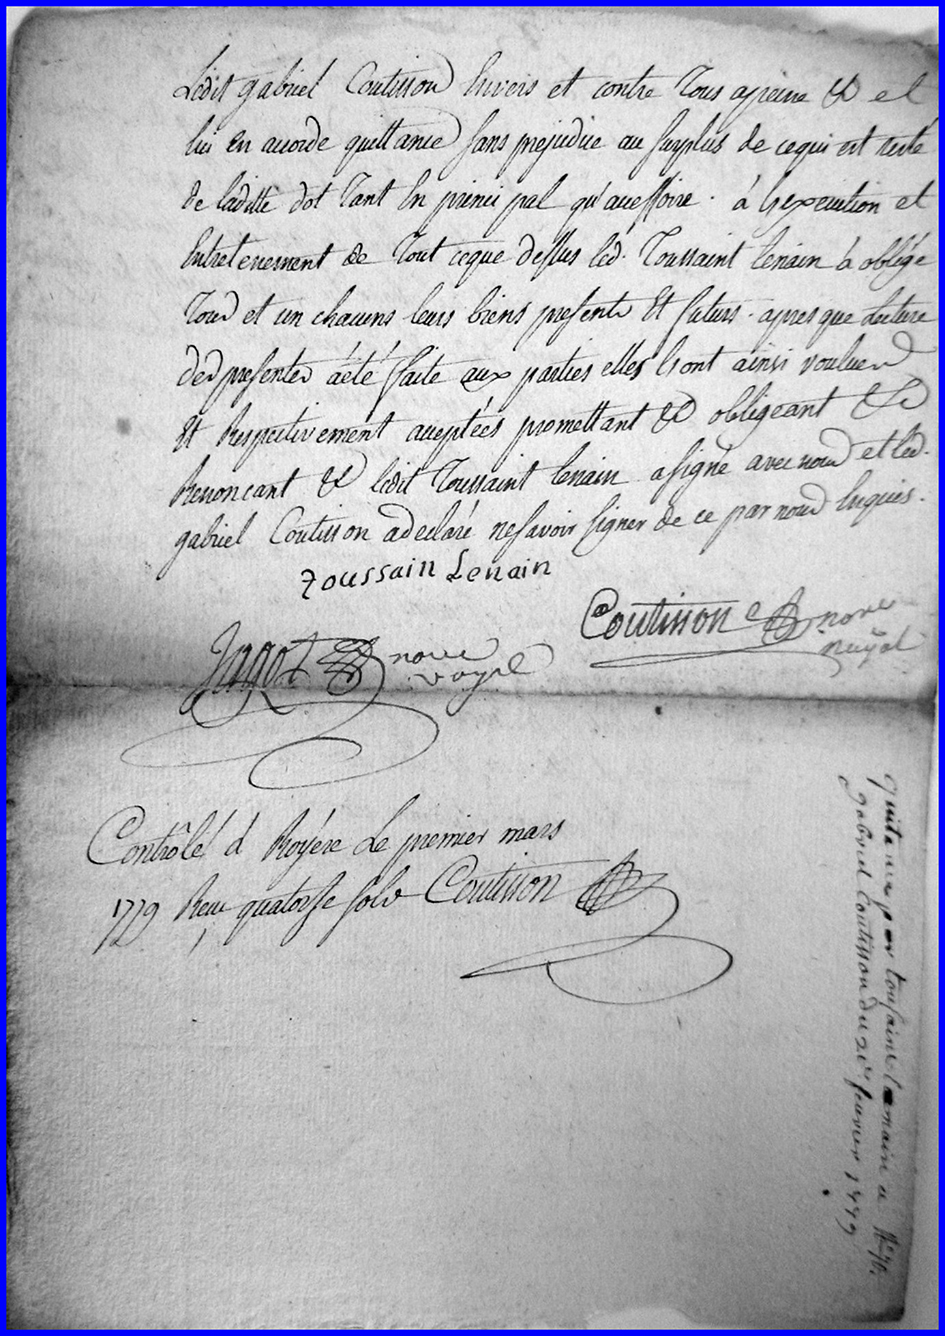 Ledit gabriel Coutisson Envers et contre Tous apeine & et
lui en acorde quittance sans prejudice au surplus de cequi est resté
de laditte dot Tant En principal qu'accessoire. à L'execution et
Entretenement de Tout ceque dessus led. Toussaint lenain à oblige
Tous et un chacuns leurs biens presents Et futurs. apres que Lecture
des presentes aété faite aux parties elles L'ont ainsi voulues
Et Respectivement acceptées promettant & obligeant &
Renoncant & ledit Toussaint lenain asigné avec nous et led.
gabriel Coutisson adeclaré nesavoir signer de ce par nous Enquis.
Toussain Lenain
Coutisson nore
royal
Jagot nore
royal
Contrôlé à Royére Le premier mars
1779 Reçu quatorze sols Coutisson
quitance par tousaint lenain a
gabriel Coutisson du 20e fevrier 1779